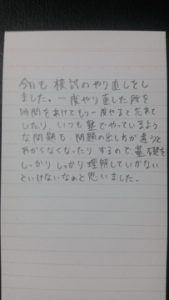 今日も模試のやり直しをし
ました。一度やり直した所を
時間をあけてもう一度やると忘れて
したり、いつも塾でやっているよう
な問題も問題の出し方が違うと
わからなくなったりするので基礎を
しっかりしっかり理解していかない
といけないなぁと思いました。